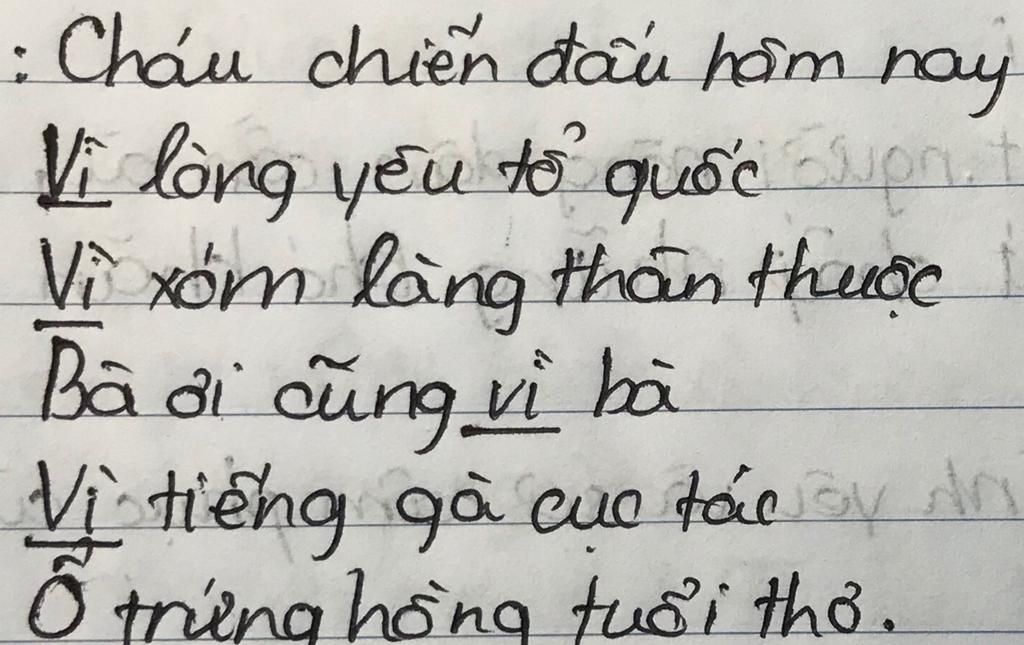 : Cháu chiến đấu hôm nay
Vì lòng yêu tổ quốc
Vì xóm làng thân thuộc
Bà ơi cũng vì bà
Vì tiếng gà cục tác
Ổ trứng hồng tuổi thơ.